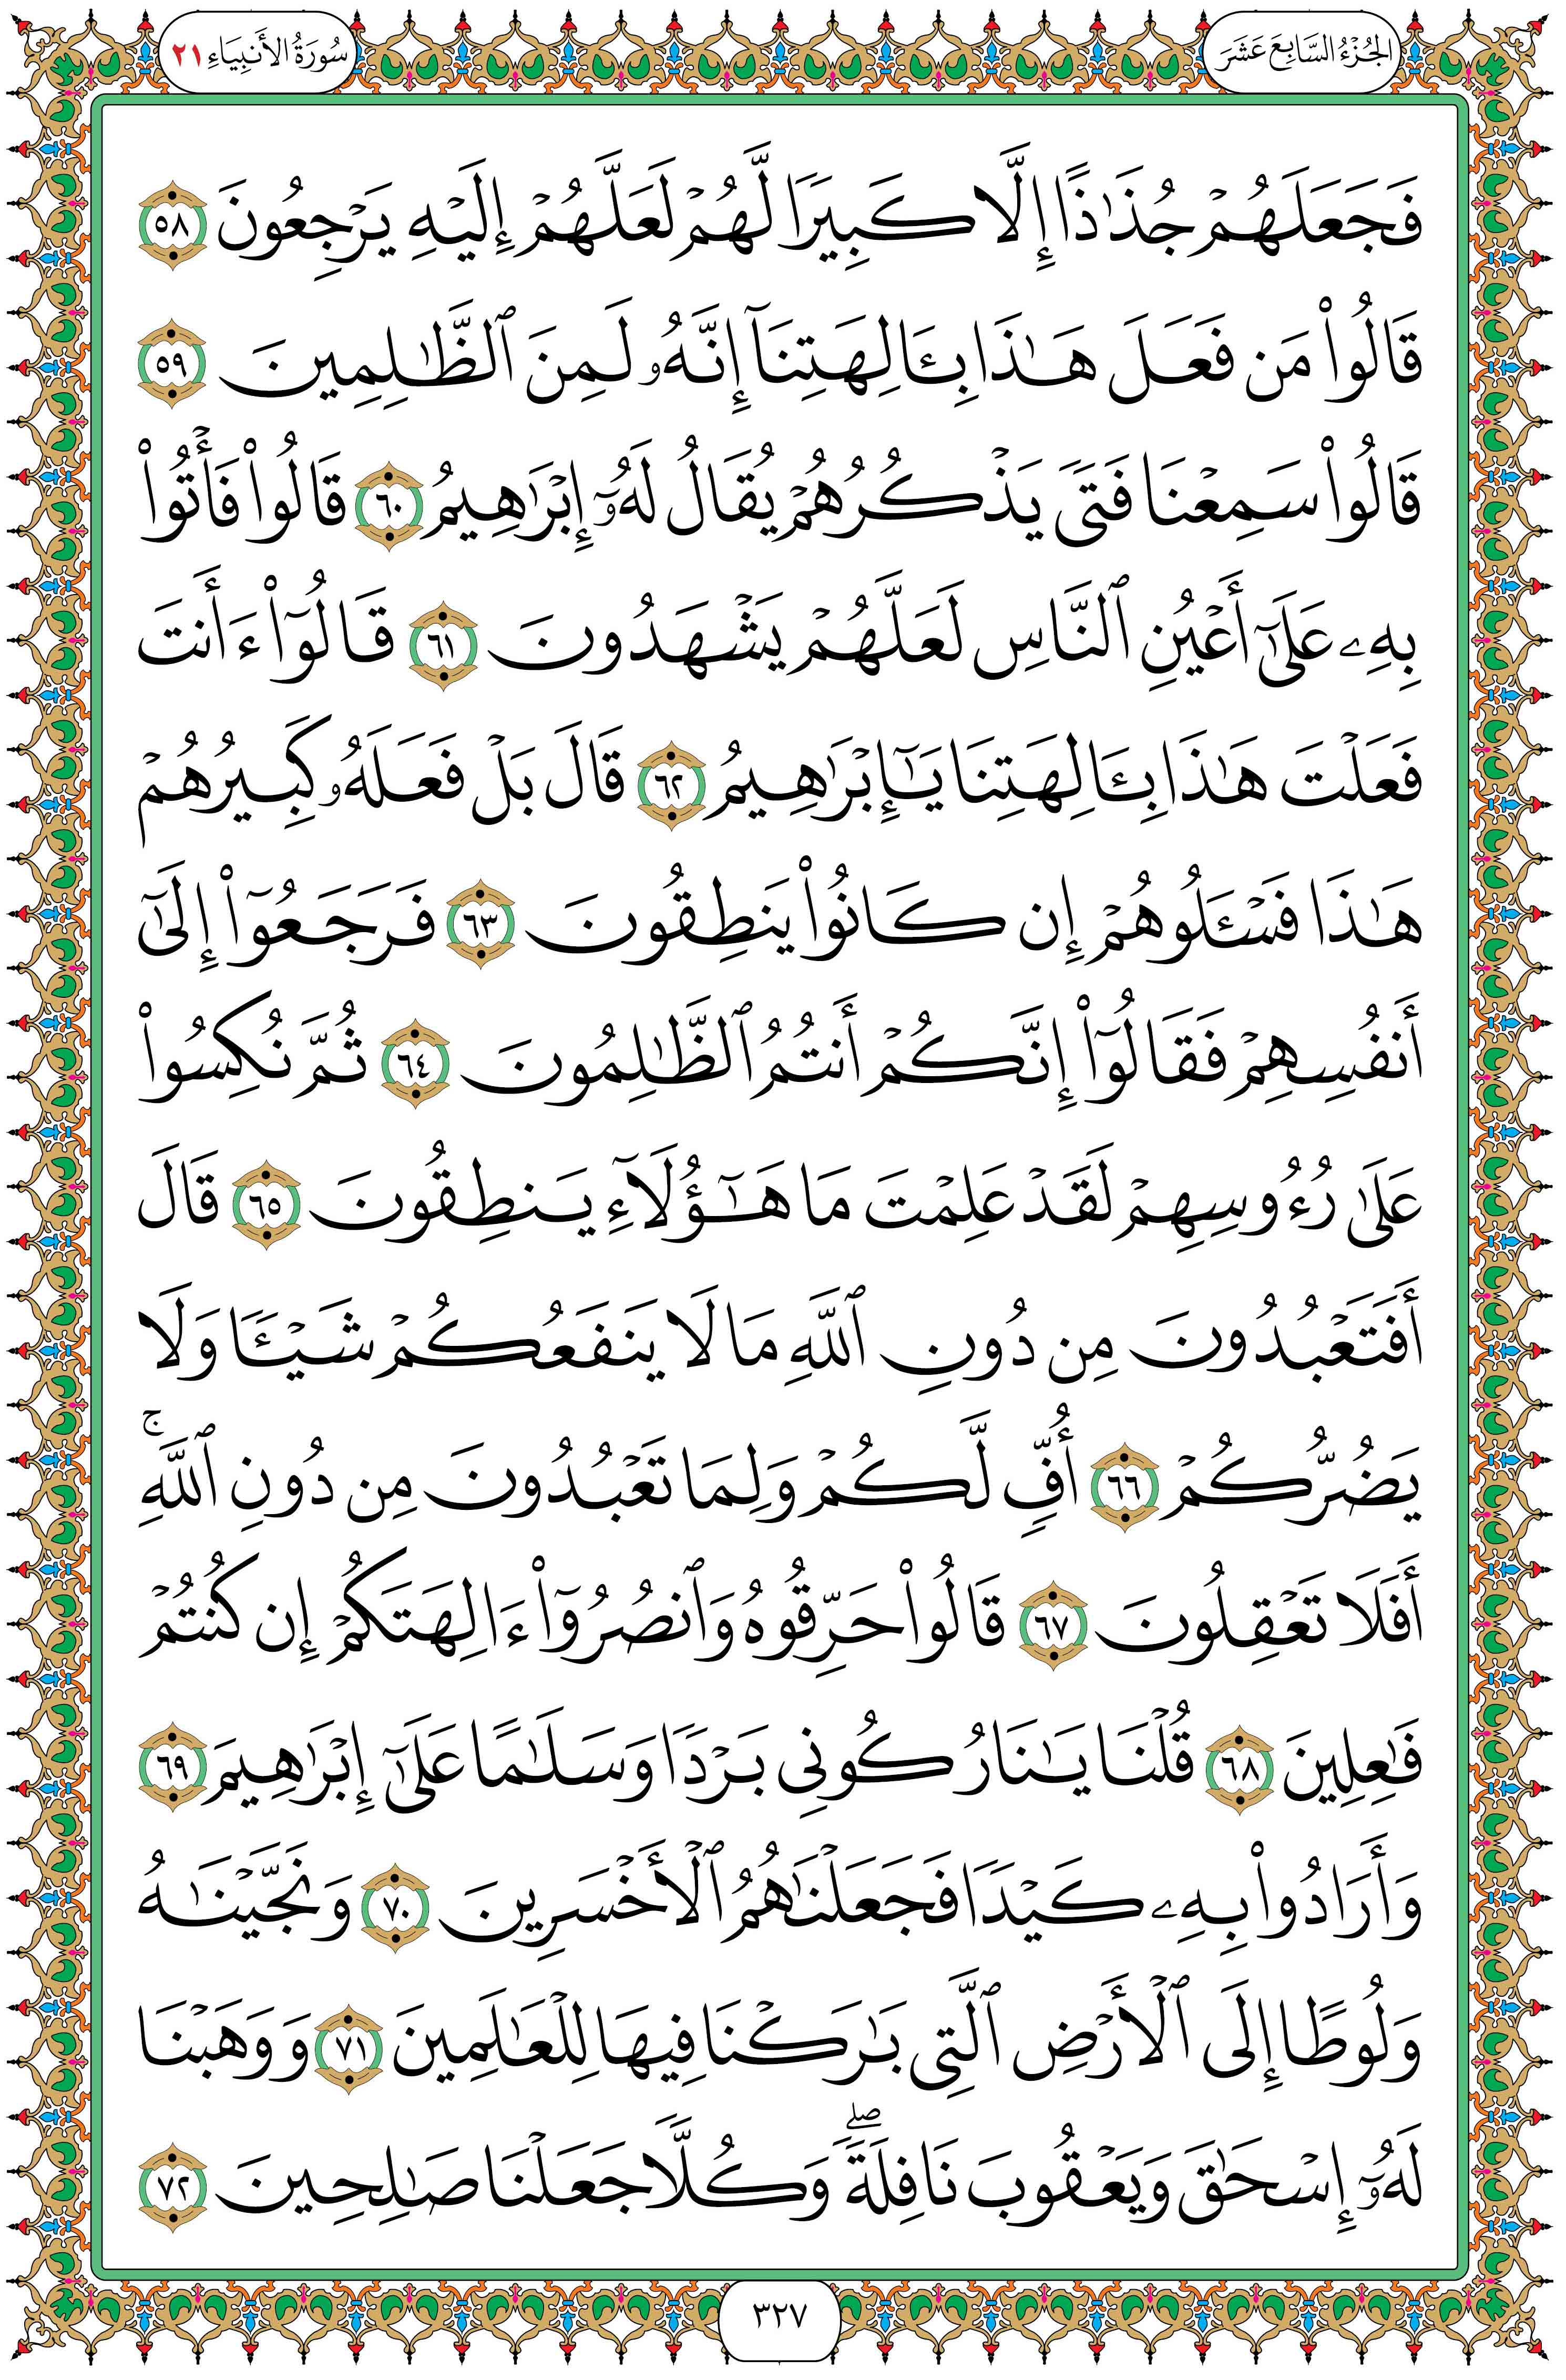 الجُزْءُ السَّابِعَ عَشَرَ
سُورَةُ الأَنبِيَاءِ ٢١
فَجَعَلَهُمْ جُذَٰذًا إِلَّا كَبِيرًا لَّهُمْ لَعَلَّهُمْ إِلَيْهِ يَرْجِعُونَ ٥٨
قَالُوا۟ مَن فَعَلَ هَـٰذَا بِـَٔالِهَتِنَآ إِنَّهُۥ لَمِنَ ٱلظَّـٰلِمِينَ ٥٩
قَالُوا۟ سَمِعْنَا فَتًى يَذْكُرُهُمْ يُقَالُ لَهُۥٓ إِبْرَٰهِيمُ ٦٠ قَالُوا۟ فَأْتُوا۟
بِهِۦ عَلَىٰٓ أَعْيُنِ ٱلنَّاسِ لَعَلَّهُمْ يَشْهَدُونَ ٦١ قَالُوٓا۟ ءَأَنتَ
فَعَلْتَ هَـٰذَا بِـَٔالِهَتِنَا يَـٰٓإِبْرَٰهِيمُ ٦٢ قَالَ بَلْ فَعَلَهُۥ كَبِيرُهُمْ
هَـٰذَا فَسْـَٔلُوهُمْ إِن كَانُوا۟ يَنطِقُونَ ٦٣ فَرَجَعُوٓا۟ إِلَىٰٓ
أَنفُسِهِمْ فَقَالُوٓا۟ إِنَّكُمْ أَنتُمُ ٱلظَّـٰلِمُونَ ٦٤ ثُمَّ نُكِسُوا۟
عَلَىٰ رُءُوسِهِمْ لَقَدْ عَلِمْتَ مَا هَـٰٓؤُلَآءِ يَنطِقُونَ ٦٥ قَالَ
أَفَتَعْبُدُونَ مِن دُونِ ٱللَّهِ مَا لَا يَنفَعُكُمْ شَيْـًٔا وَلَا
يَضُرُّكُمْ ٦٦ أُفٍّ لَّكُمْ وَلِمَا تَعْبُدُونَ مِن دُونِ ٱللَّهِ ۚ
أَفَلَا تَعْقِلُونَ ٦٧ قَالُوا۟ حَرِّقُوهُ وَٱنصُرُوٓا۟ ءَالِهَتَكُمْ إِن كُنتُمْ
فَـٰعِلِينَ ٦٨ قُلْنَا يَـٰنَارُ كُونِى بَرْدًا وَسَلَـٰمًا عَلَىٰٓ إِبْرَٰهِيمَ ٦٩
وَأَرَادُوا۟ بِهِۦ كَيْدًا فَجَعَلْنَـٰهُمُ ٱلْأَخْسَرِينَ ٧٠ وَنَجَّيْنَـٰهُ
وَلُوطًا إِلَى ٱلْأَرْضِ ٱلَّتِى بَـٰرَكْنَا فِيهَا لِلْعَـٰلَمِينَ ٧١ وَوَهَبْنَا
لَهُۥٓ إِسْحَـٰقَ وَيَعْقُوبَ نَافِلَةً ۖ وَكُلًّا جَعَلْنَا صَـٰلِحِينَ ٧٢
٣٢٧